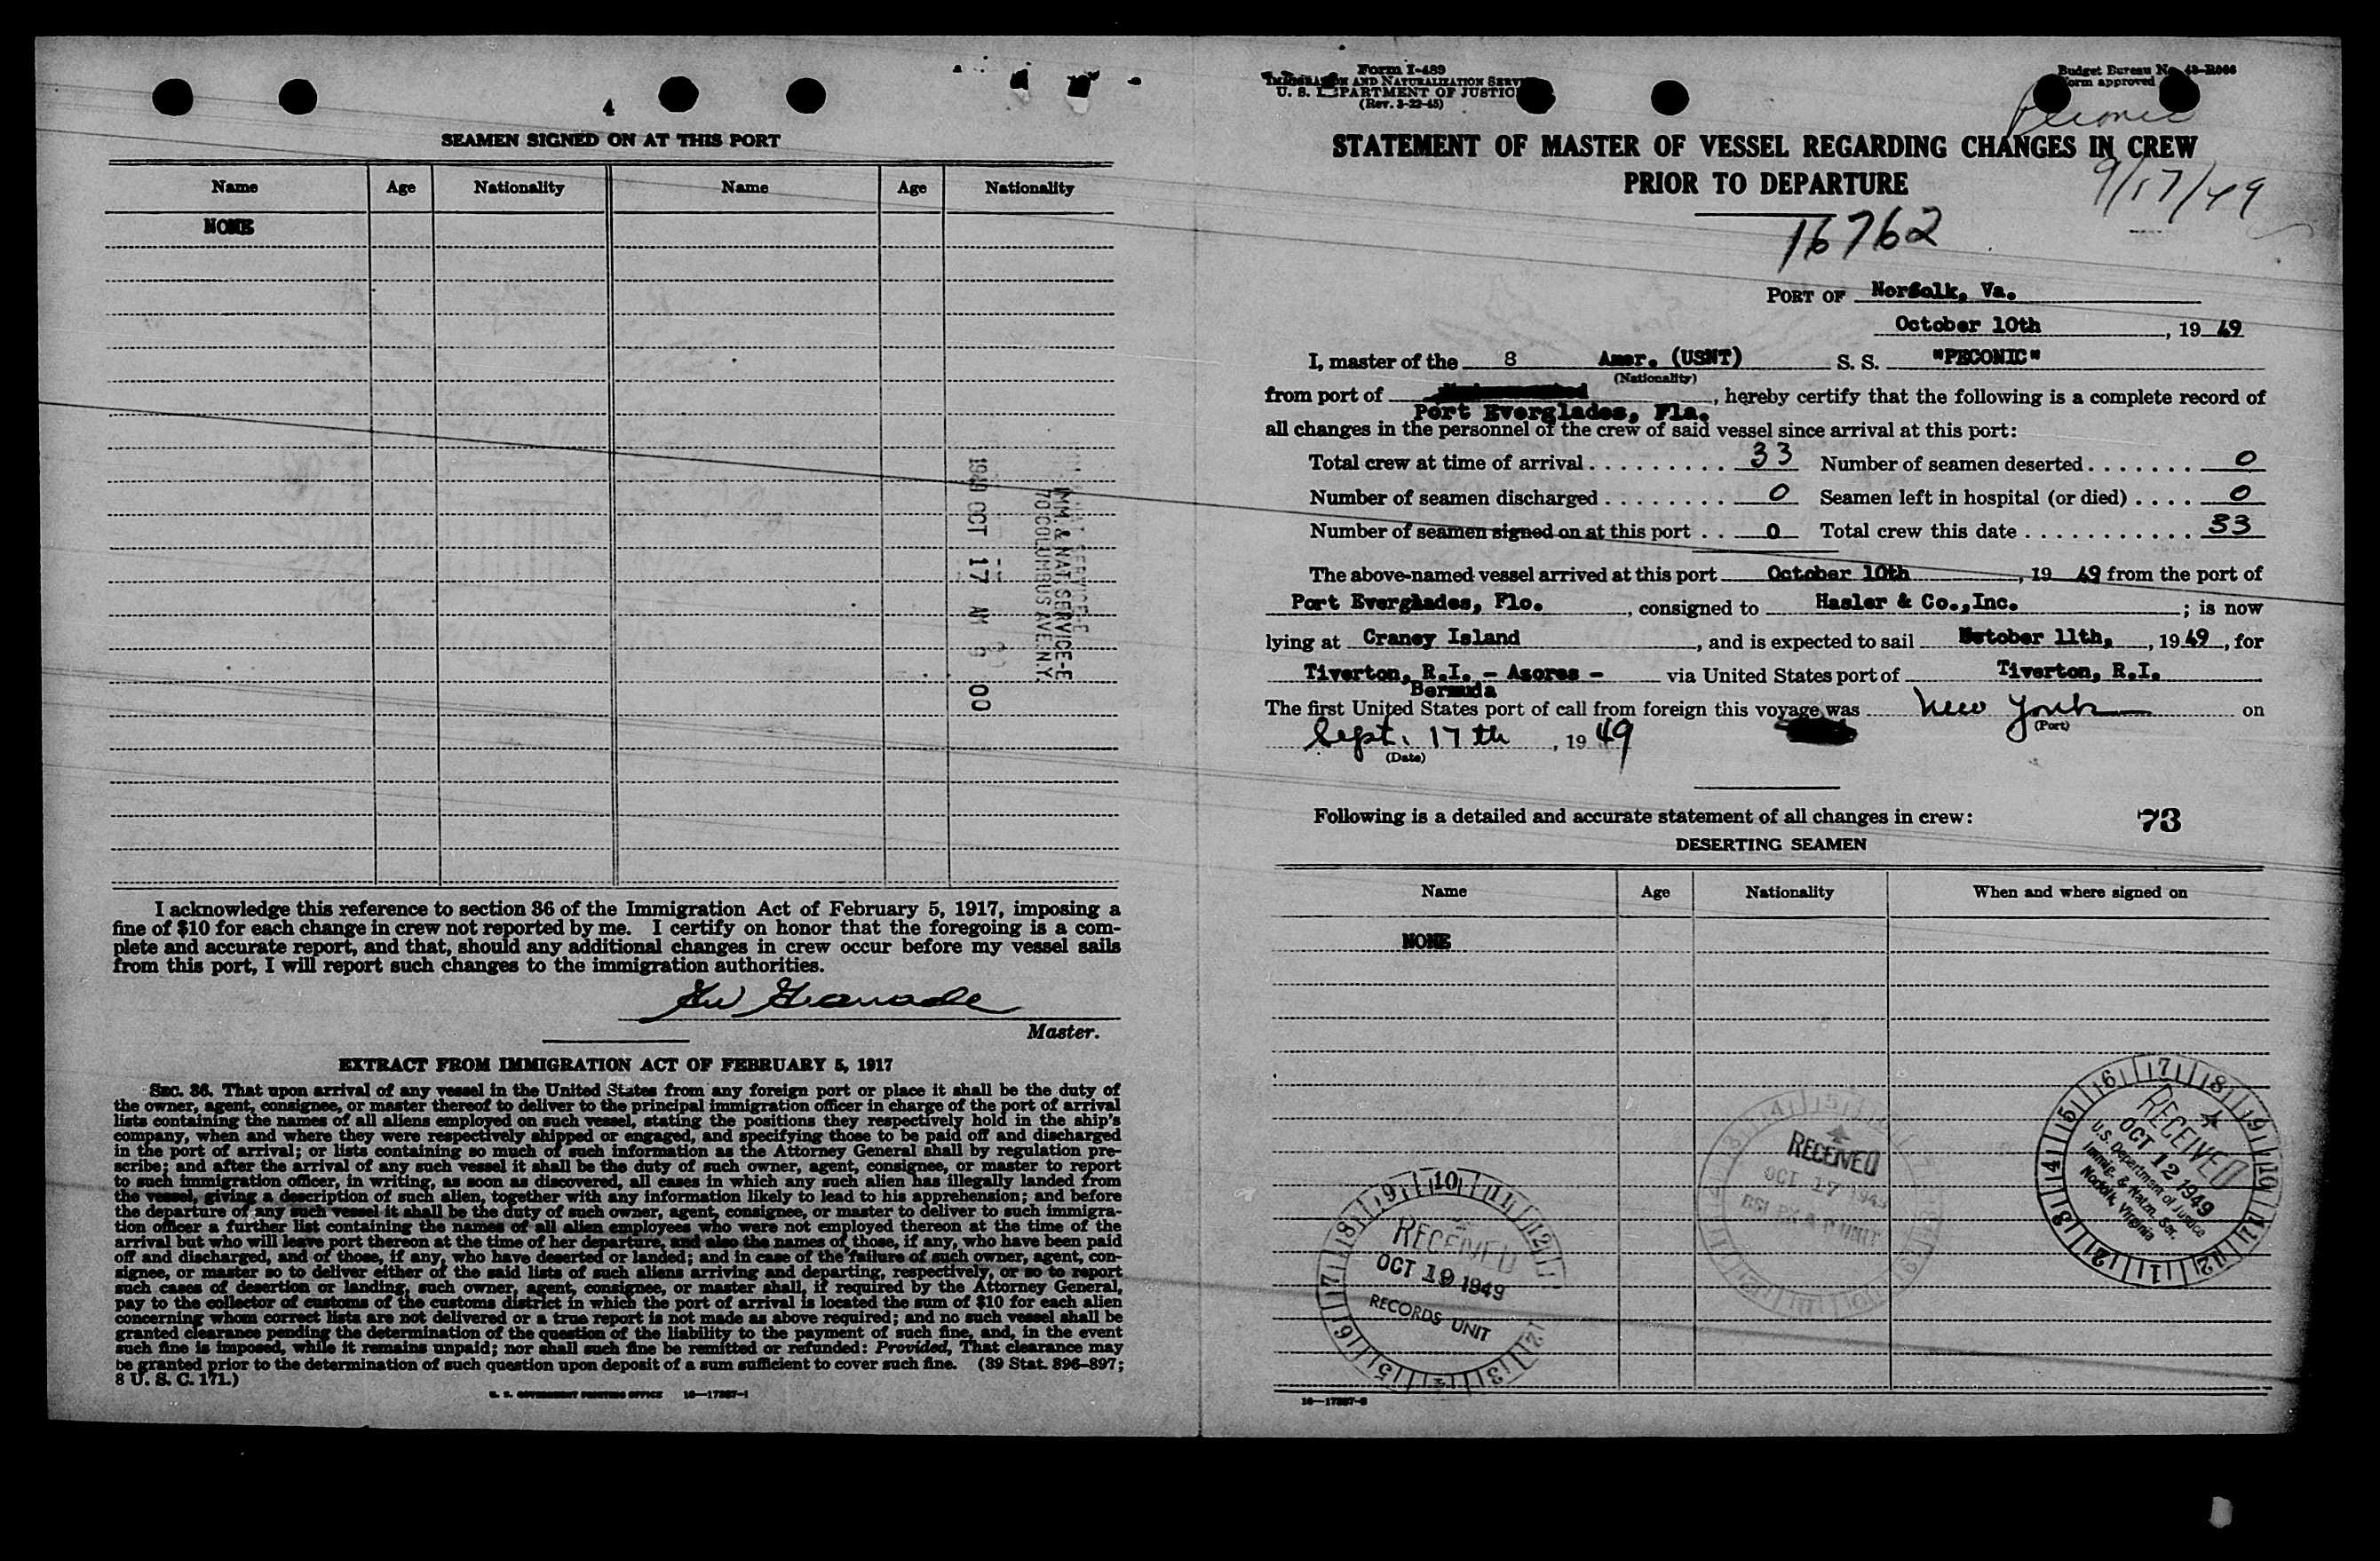 4
SEAMEN SIGNED ON AT THIS PORT
Name Age Nationality Name Age Nationality
NONE
1949 OCT 17 AM 9 00
IMM. & NAT. SERVICE-E
70 COLUMBUS AVE. N.Y.
I acknowledge this reference to section 36 of the Immigration Act of February 5, 1917, imposing a
fine of $10 for each change in crew not reported by me. I certify on honor that the foregoing is a com-
plete and accurate report, and that, should any additional changes in crew occur before my vessel sails
from this port, I will report such changes to the immigration authorities.
Master.
EXTRACT FROM IMMIGRATION ACT OF FEBRUARY 5, 1917
SEC. 36. That upon arrival of any vessel in the United States from any foreign port or place it shall be the duty of
the owner, agent, consignee, or master thereof to deliver to the principal immigration officer in charge of the port of arrival
lists containing the names of all aliens employed on such vessel, stating the positions they respectively hold in the ship's
company, when and where they were respectively shipped or engaged, and specifying those to be paid off and discharged
in the port of arrival; or lists containing so much of such information as the Attorney General shall by regulation pre-
scribe; and after the arrival of any such vessel it shall be the duty of such owner, agent, consignee, or master to report
to such immigration officer, in writing, as soon as discovered, all cases in which any such alien has illegally landed from
the vessel, giving a description of such alien, together with any information likely to lead to his apprehension; and before
the departure of any such vessel it shall be the duty of such owner, agent, consignee, or master to deliver to such immigra-
tion officer a further list containing the names of all alien employees who were not employed thereon at the time of the
arrival but who will leave port thereon at the time of her departure, and also the names of those, if any, who have been paid
off and discharged, and of those, if any, who have deserted or landed; and in case of the failure of such owner, agent, con-
signee, or master so to deliver either of the said lists of such aliens arriving and departing, respectively, or so to report
such cases of desertion or landing, such owner, agent, consignee, or master shall, if required by the Attorney General,
pay to the collector of customs of the customs district in which the port of arrival is located the sum of $10 for each alien
concerning whom correct lists are not delivered or a true report is not made as above required; and no such vessel shall be
granted clearance pending the determination of the question of the liability to the payment of such fine, and, in the event
such fine is imposed, while it remains unpaid; nor shall such fine be remitted or refunded: Provided, That clearance may
be granted prior to the determination of such question upon deposit of a sum sufficient to cover such fine. (39 Stat. 896-897;
8 U. S. C. 171.)
U. S. GOVERNMENT PRINTING OFFICE 16—17387-1
Form I-489
IMMIGRATION AND NATURALIZATION SERVICE
U. S. DEPARTMENT OF JUSTICE
(Rev. 3-22-45)
Budget Bureau No. 43-R066
Form approved
Peconic
STATEMENT OF MASTER OF VESSEL REGARDING CHANGES IN CREW
PRIOR TO DEPARTURE
9/17/49
16762
PORT OF Norfolk, Va.
October 10th, 19 49
I, master of the 8 Amer. (USNT) S. S. "PECONIC"
(Nationality)
from port of , hereby certify that the following is a complete record of
Port Everglades, Fla.
all changes in the personnel of the crew of said vessel since arrival at this port:
Total crew at time of arrival 33 Number of seamen deserted 0
Number of seamen discharged 0 Seamen left in hospital (or died) 0
Number of seamen signed on at this port 0 Total crew this date 33
The above-named vessel arrived at this port October 10th, 19 49 from the port of
Port Everglades, Flo., consigned to Hasler & Co.,Inc.; is now
lying at Craney Island, and is expected to sail October 11th, , 19 49, for
Tiverton, R.I. - Azores - via United States port of Tiverton, R.I.
Bermuda
The first United States port of call from foreign this voyage was New York on
(Port)
Sept. 17th, 19 49
(Date)
Following is a detailed and accurate statement of all changes in crew: 73
DESERTING SEAMEN
Name Age Nationality When and where signed on
NONE
RECEIVED
OCT 12 1949
U.S. Department of Justice
Immig. & Natzn. Ser.
Norfolk, Virginia
RECEIVED
OCT 17 1949
RECEIVED
OCT 19 1949
RECORDS UNIT